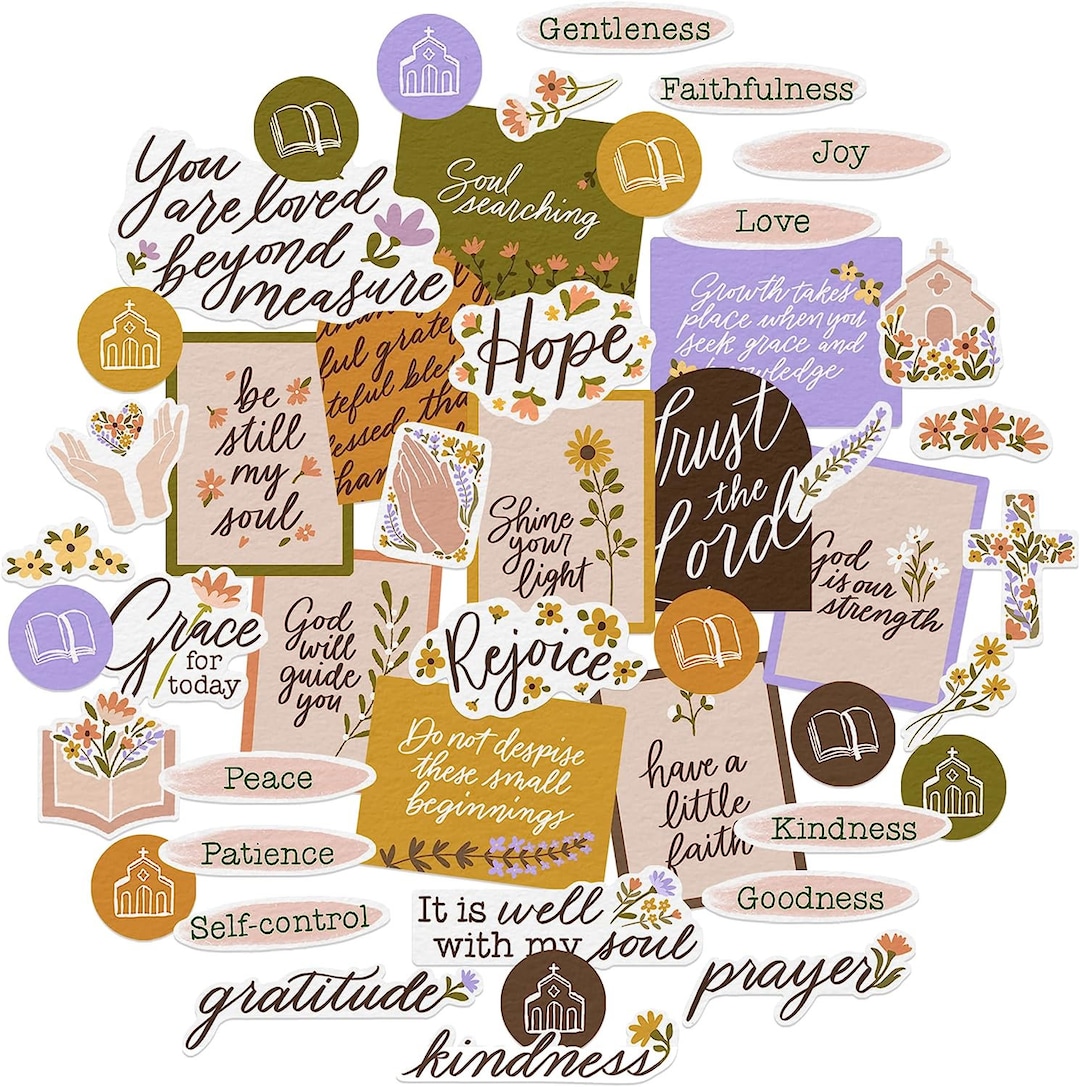 Gentleness
Faithfulness
Joy
Love
You
are loved
beyond
measure
Soul
searching
Growth takes
place when you
seek grace and
knowledge
ful grate
teful ble
essed tha
han
Hope
be
still
my
soul
Shine
your
light
Trust
the
Lord
God
is our
strength
Grace
for
today
God
will
guide
you
Rejoice
Do not despise
these small
beginnings
have a
little
faith
Peace
Patience
Self-control
Kindness
Goodness
It is well
with my soul
gratitude
prayer
kindness